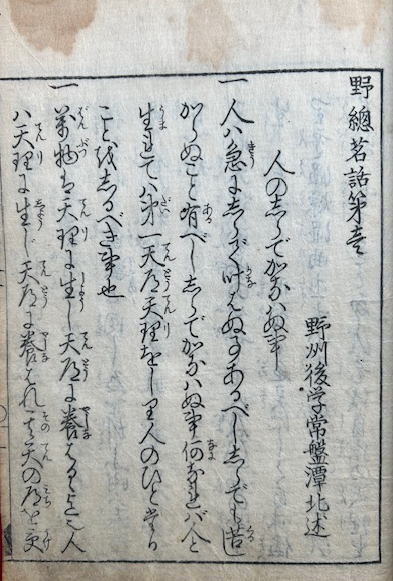 野總茗話第壱
野州後学常盤潭北述
人のしらでかなハぬ事
一 人ハ急にしらで叶はぬ事あるべししらでも苦
からぬこと有べししらでかなハぬ事何なれバ人と
生れてハ第一天道天理をしり人のひとたる
ことをしるべき事也
一 萬物は天理に生し天道に養はる 人
ハ天理に生じ天道に養はれ其天の道を受